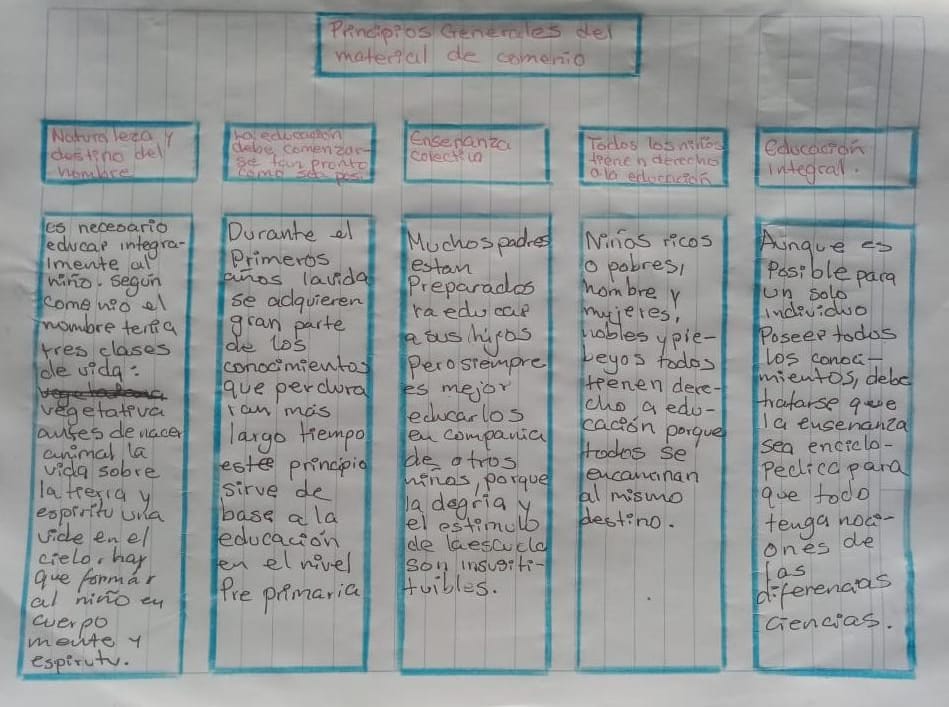 Principios Generales del
material de comenio
Naturaleza y
destino del
hombre
La educación
debe comenzar-
se tan pronto
como sea posi
Enseñanza
colectiva
Todos los niños
tienen derecho
a la educación
educación
integral.
es necesario
educar integra-
lmente al
niño. según
comenio el
hombre tenia
tres clases
de vida:
vegetativa
antes de nacer
animal la
vida sobre
la tierra y
espiritu una
vide en el
cielo, hay
que formar
al niño en
cuerpo
mente y
espirutu.
Durante el
Primeros
años la vida
se adquieren
gran parte
de los
conocimientos
que perdura
ran más
largo tiempo
este principio
sirve de
base a la
educación
en el nivel
Pre primaria
Muchos padres
estan
Preparados
ra educar
a sus hijos
Pero siempre
es mejor
educarlos
en compania
de otros
niños, porque
la alegria y
el estimulo
de la escuela
son insustti-
tuibles.
Niños ricos
o pobres,
hombre y
mujeres,
nobles y ple-
beyos todos
tienen dere-
cho a edu-
cación porque
todos se
encaminan
al mismo
destino.
Aunque es
Posible para
un solo
individuo
Poseer todos
los conoci-
mientos, debe
tratarse que
la ensenanza
sea enciclo-
Pedica para
que todo
tenga noci-
ones de
las
diferencias
ciencias.